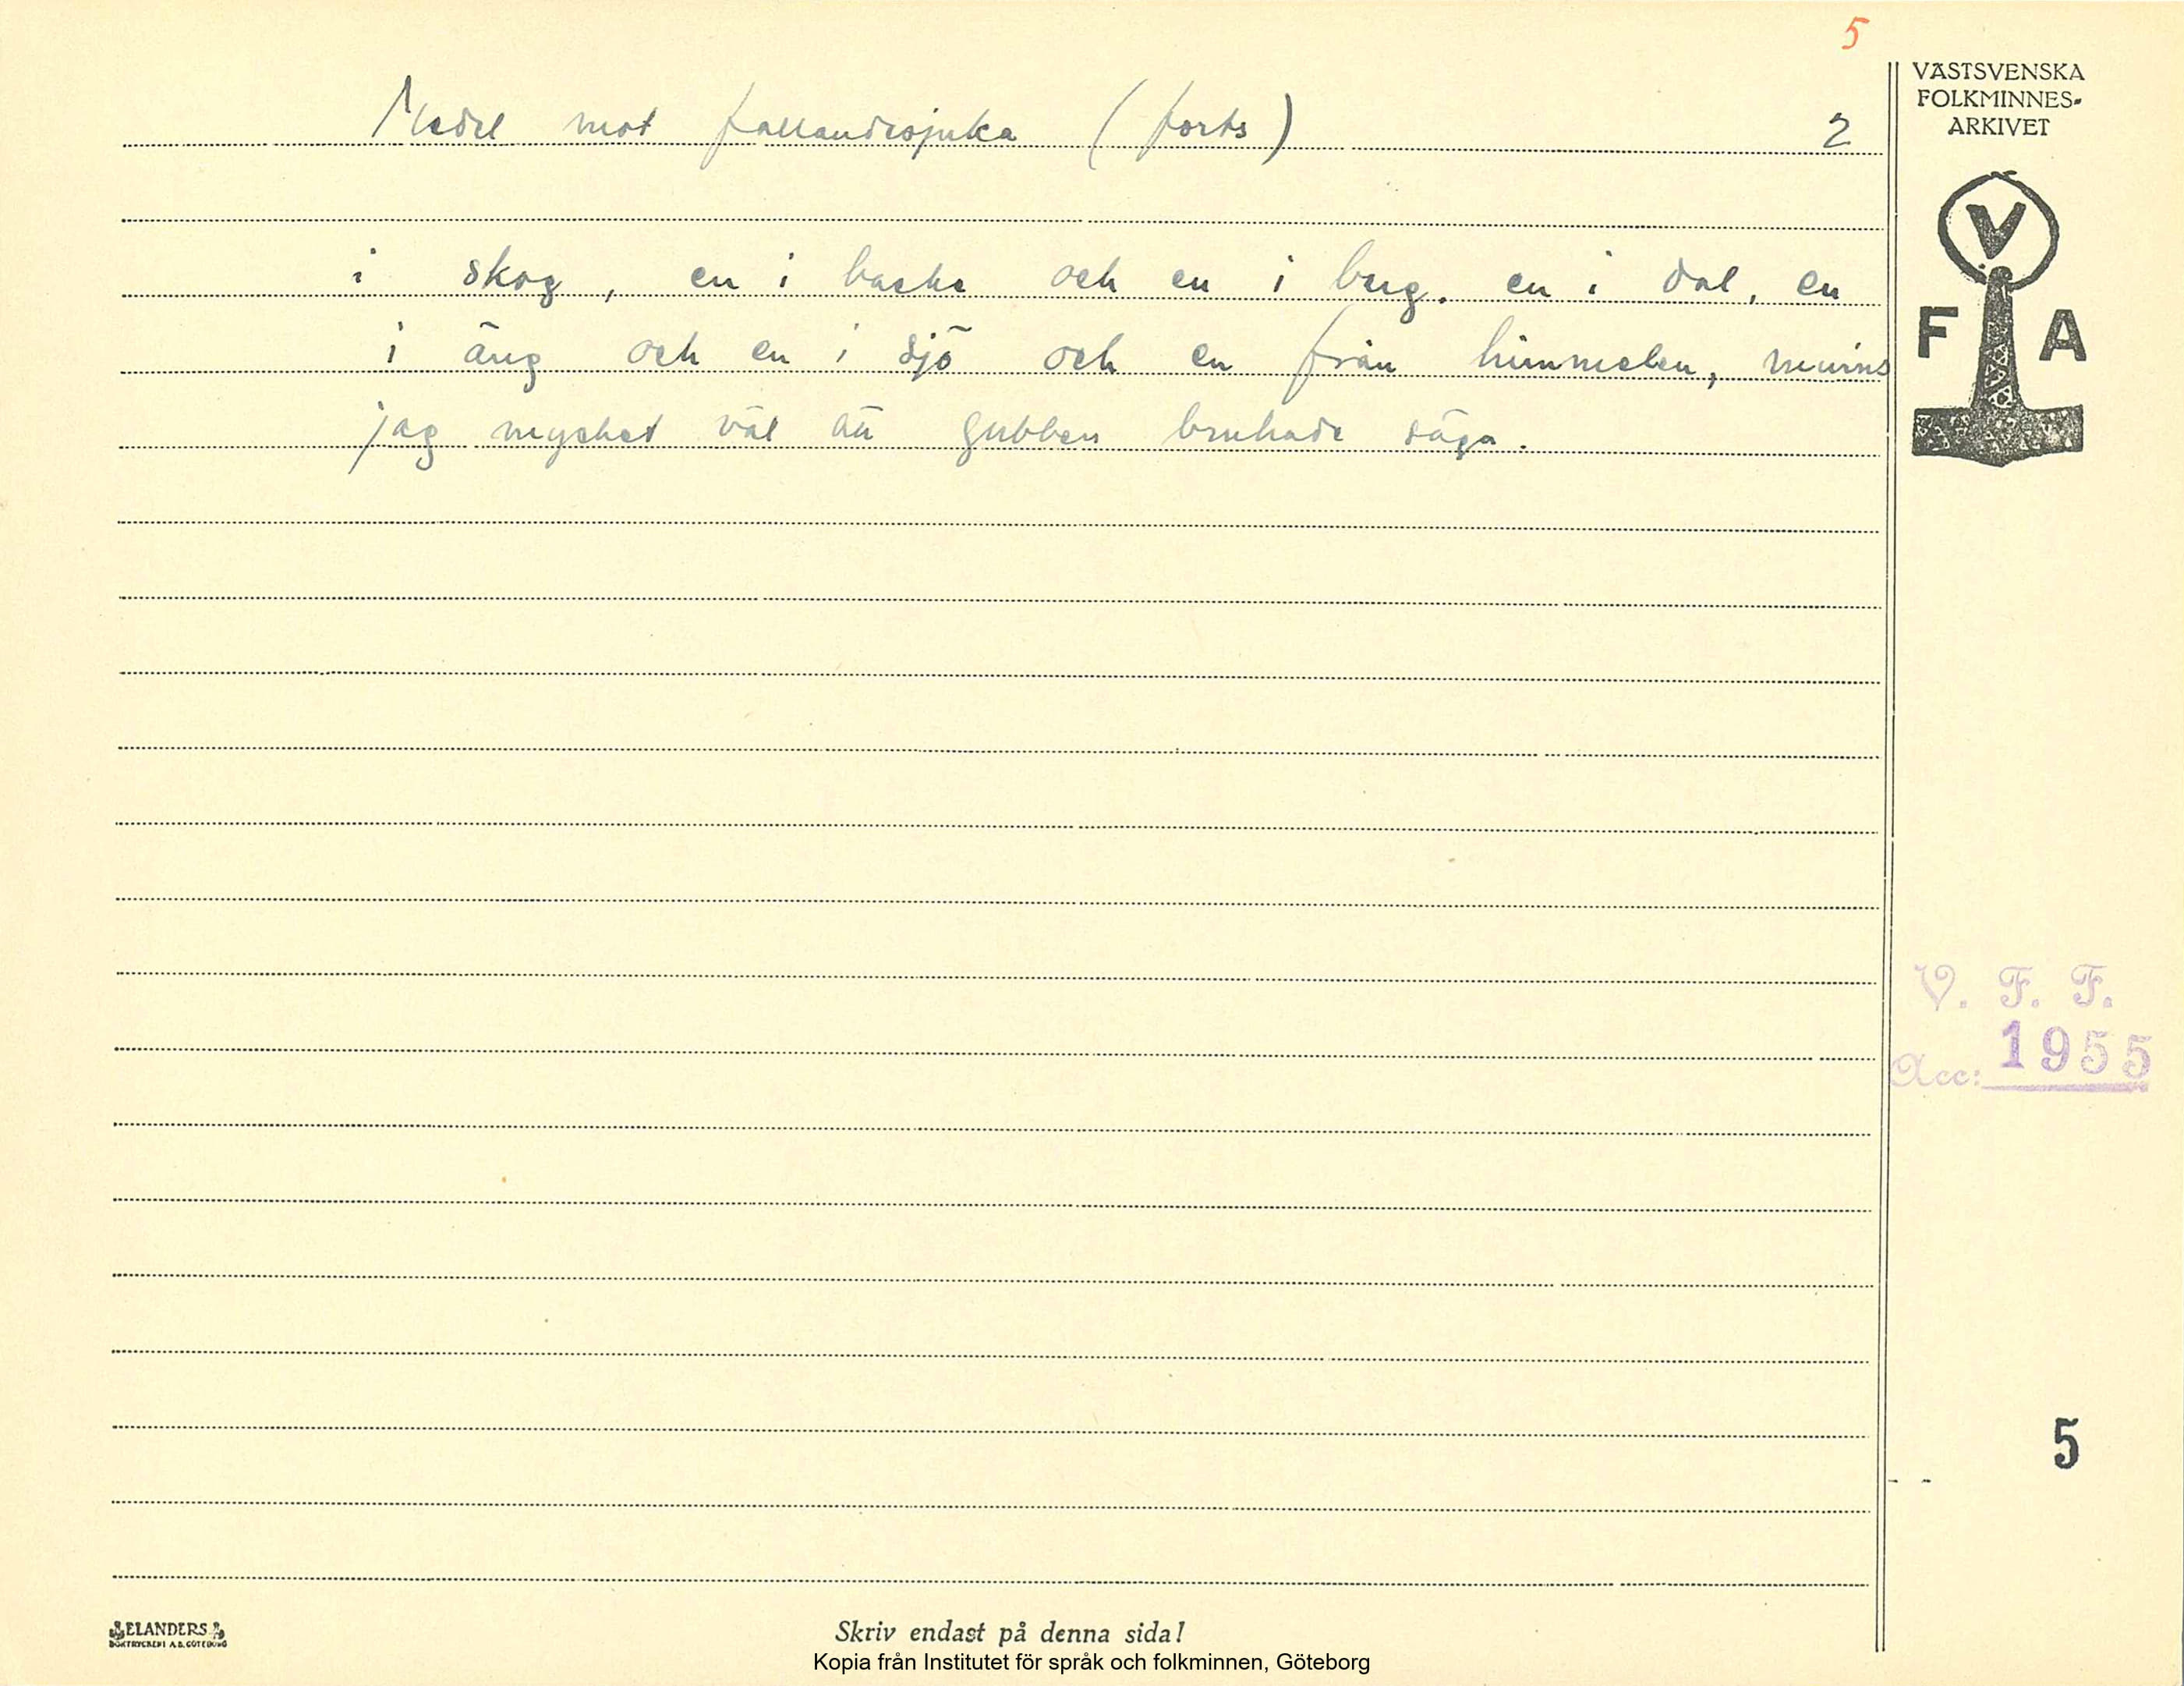 5
Medel mot fallandesjuka (forts) 2
i skog, en i backe och en i berg. en i dal, en
i äng och en i sjö och en från himmelen, minns
jag mycket väl att gubben brukade säga.
VÄSTSVENSKA
FOLKMINNES-
ARKIVET
V
F A
V. F. F.
Acc: 1955
5
ELANDERS
BOKTRYCKERI A.B. GÖTEBORG
Skriv endast på denna sida!
Kopia från Institutet för språk och folkminnen, Göteborg